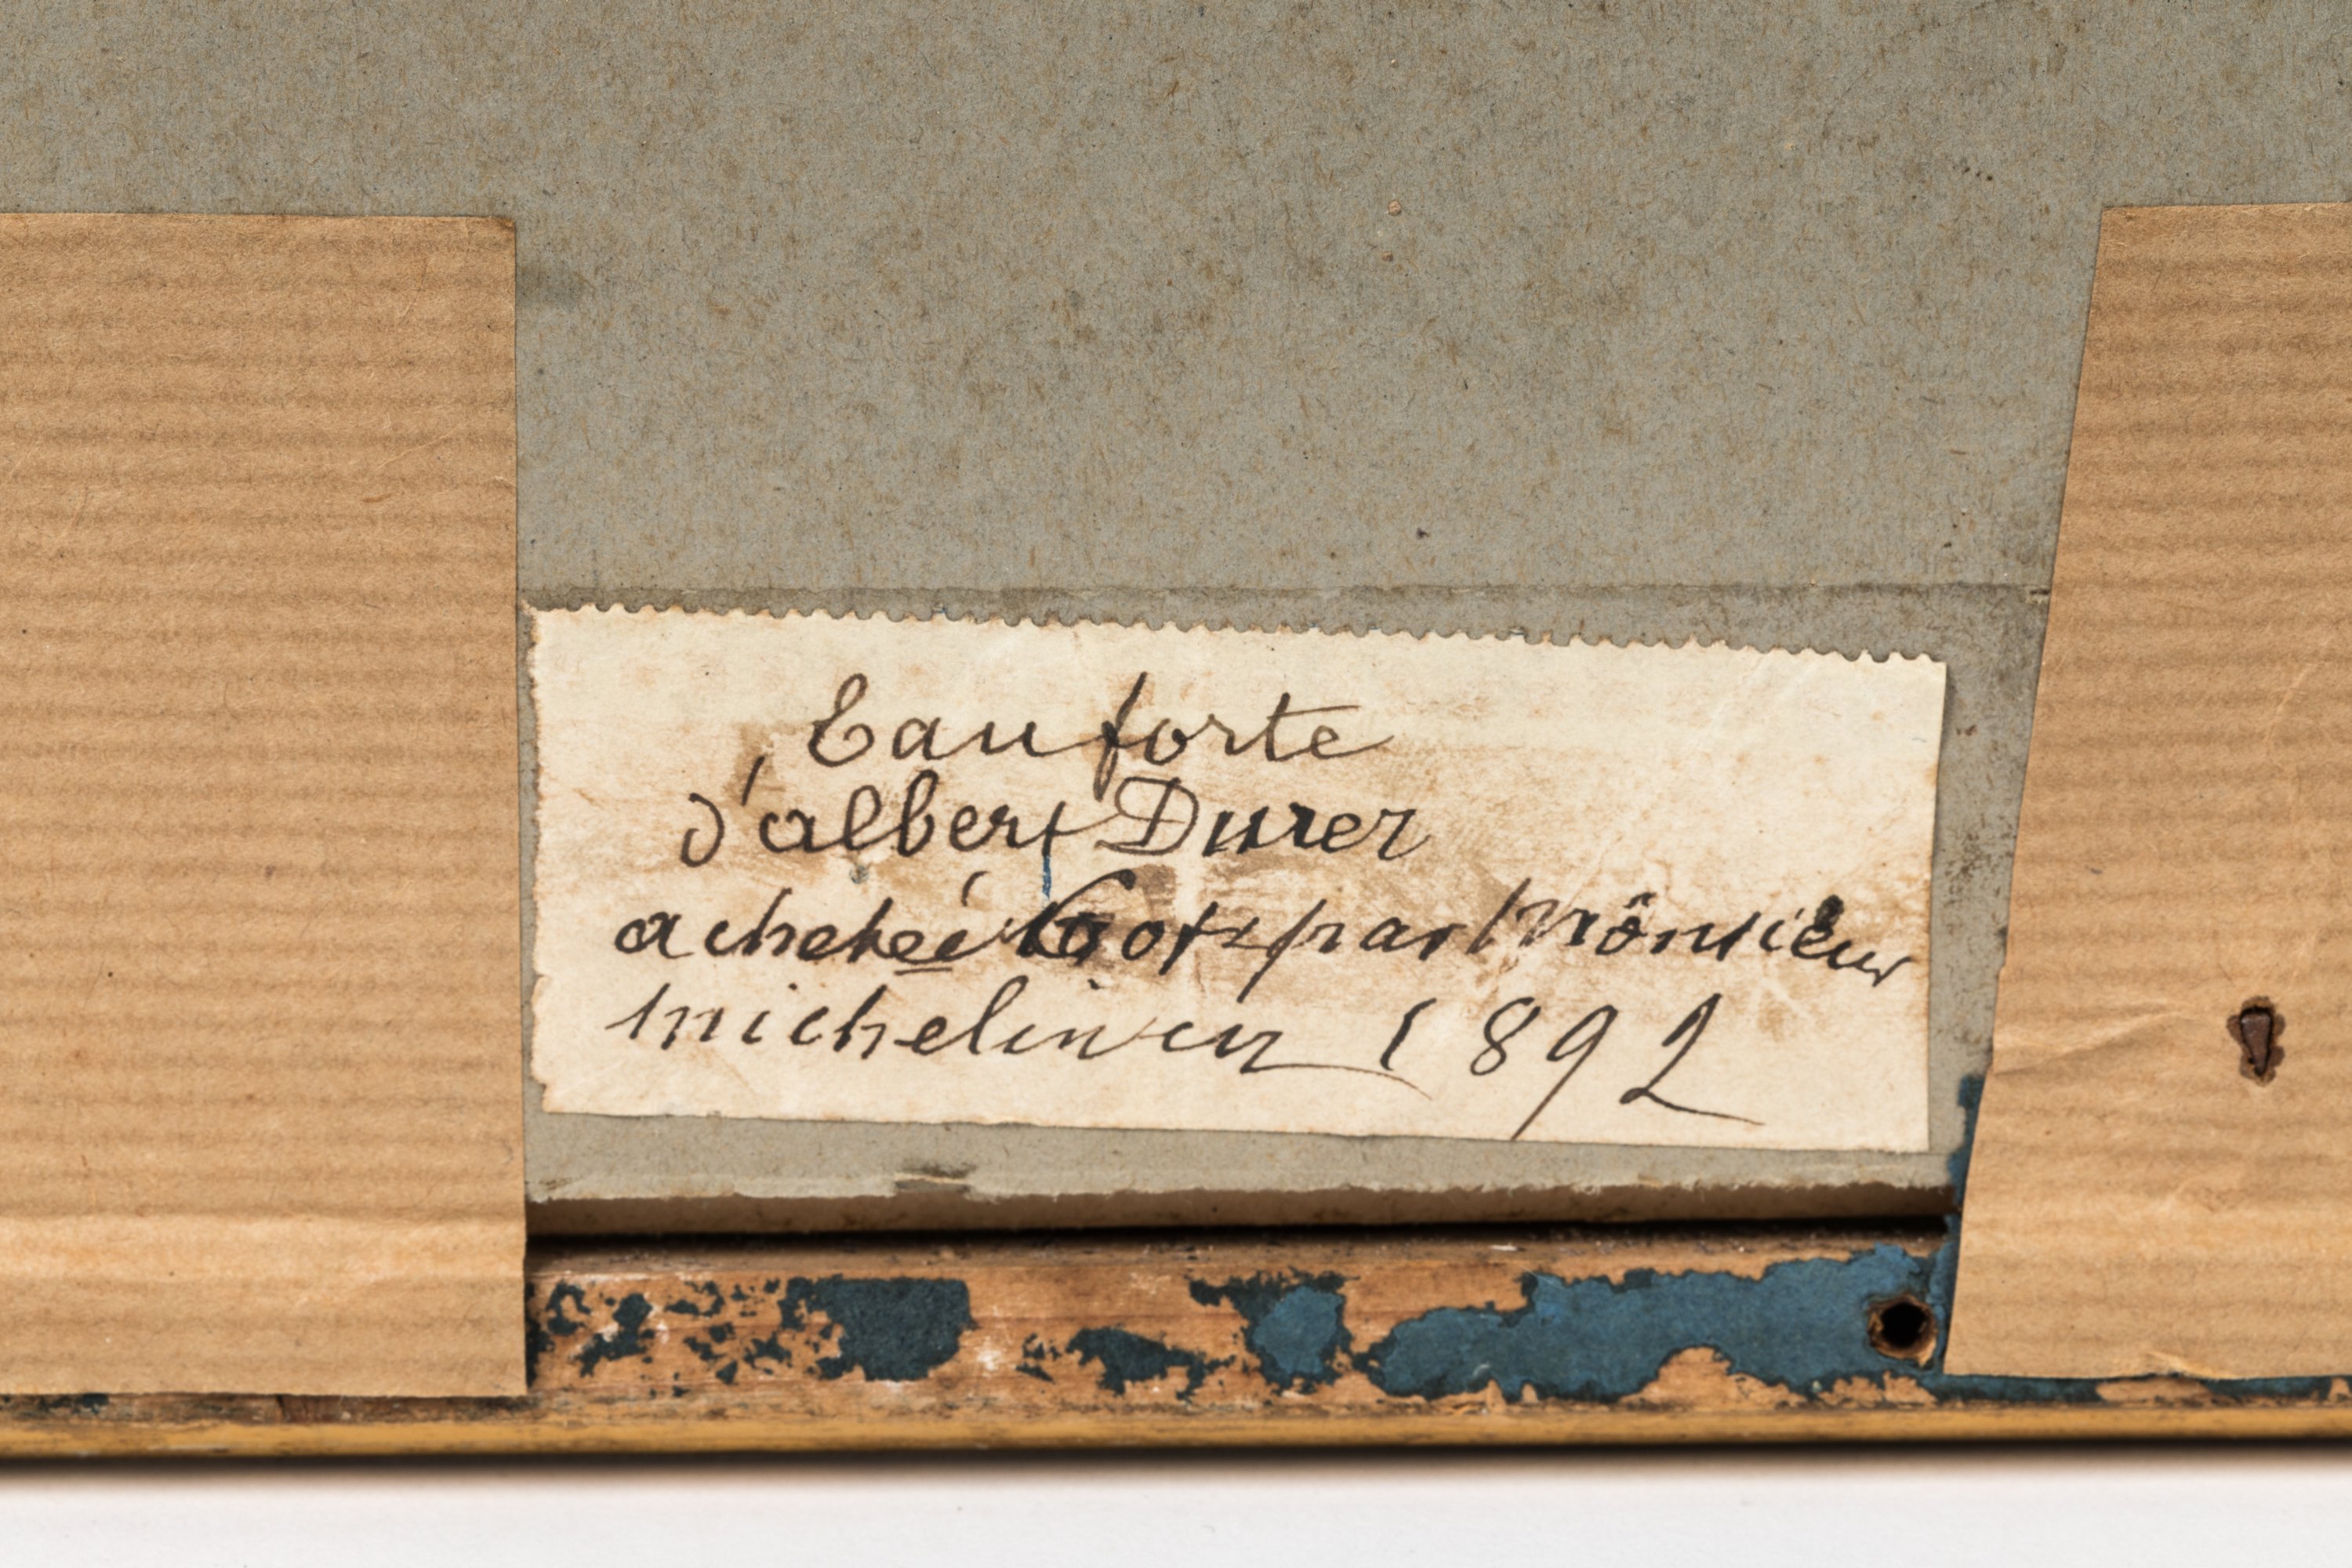 Eau forte
d'albert Durer
achetée par Monsieur
michelin en 1892